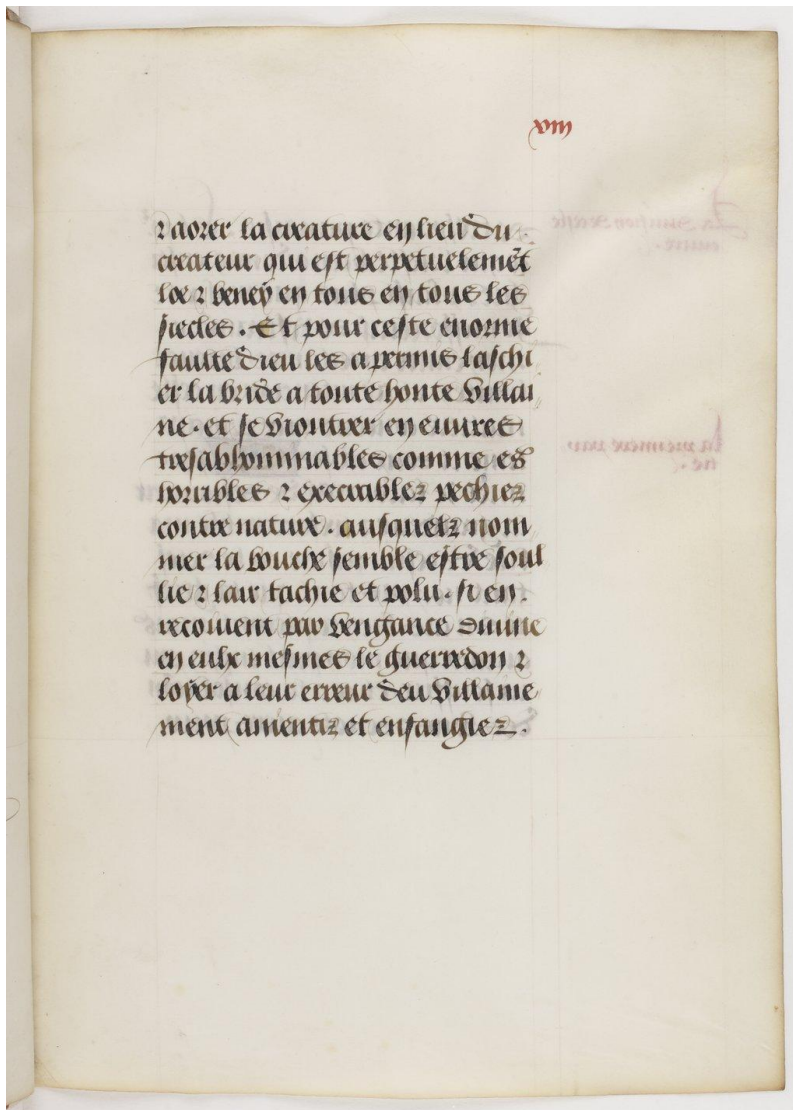 xiiij
⁊ aorer la creature en lieu du
createur qui est perpetuelemẽt
loe ⁊ beney en tous en tous les
siecles . Et pour ceste enorme
faulte dieu les a permis laschi
er la bride a toute honte villai
ne . et se vioutrer en euures
tresabhominables comme es
horribles ⁊ execrablez pechiez
contre nature . ausquelz nom
mer la bouche semble estre soul
lie ⁊ lair tachie et polu . si en
recoiuent par vengance diuine
en eulx mesmes le guerredon ⁊
loyer a leur erreur deu villaine
ment amentiz et enfangiez .